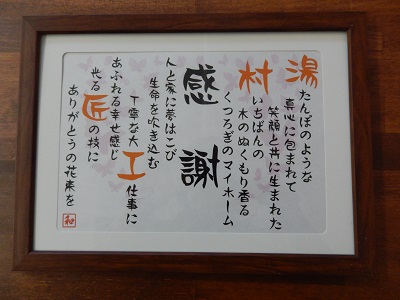 湯たんぽのような
真心に包まれて
笑顔と共に生まれた
村いちばんの
木のぬくもり香る
くつろぎのマイホーム
感謝
人と家に夢はこび
生命を吹き込む
丁寧な大工仕事に
あふれる幸せ感じ
光る匠の技に
ありがとうの花束を
和